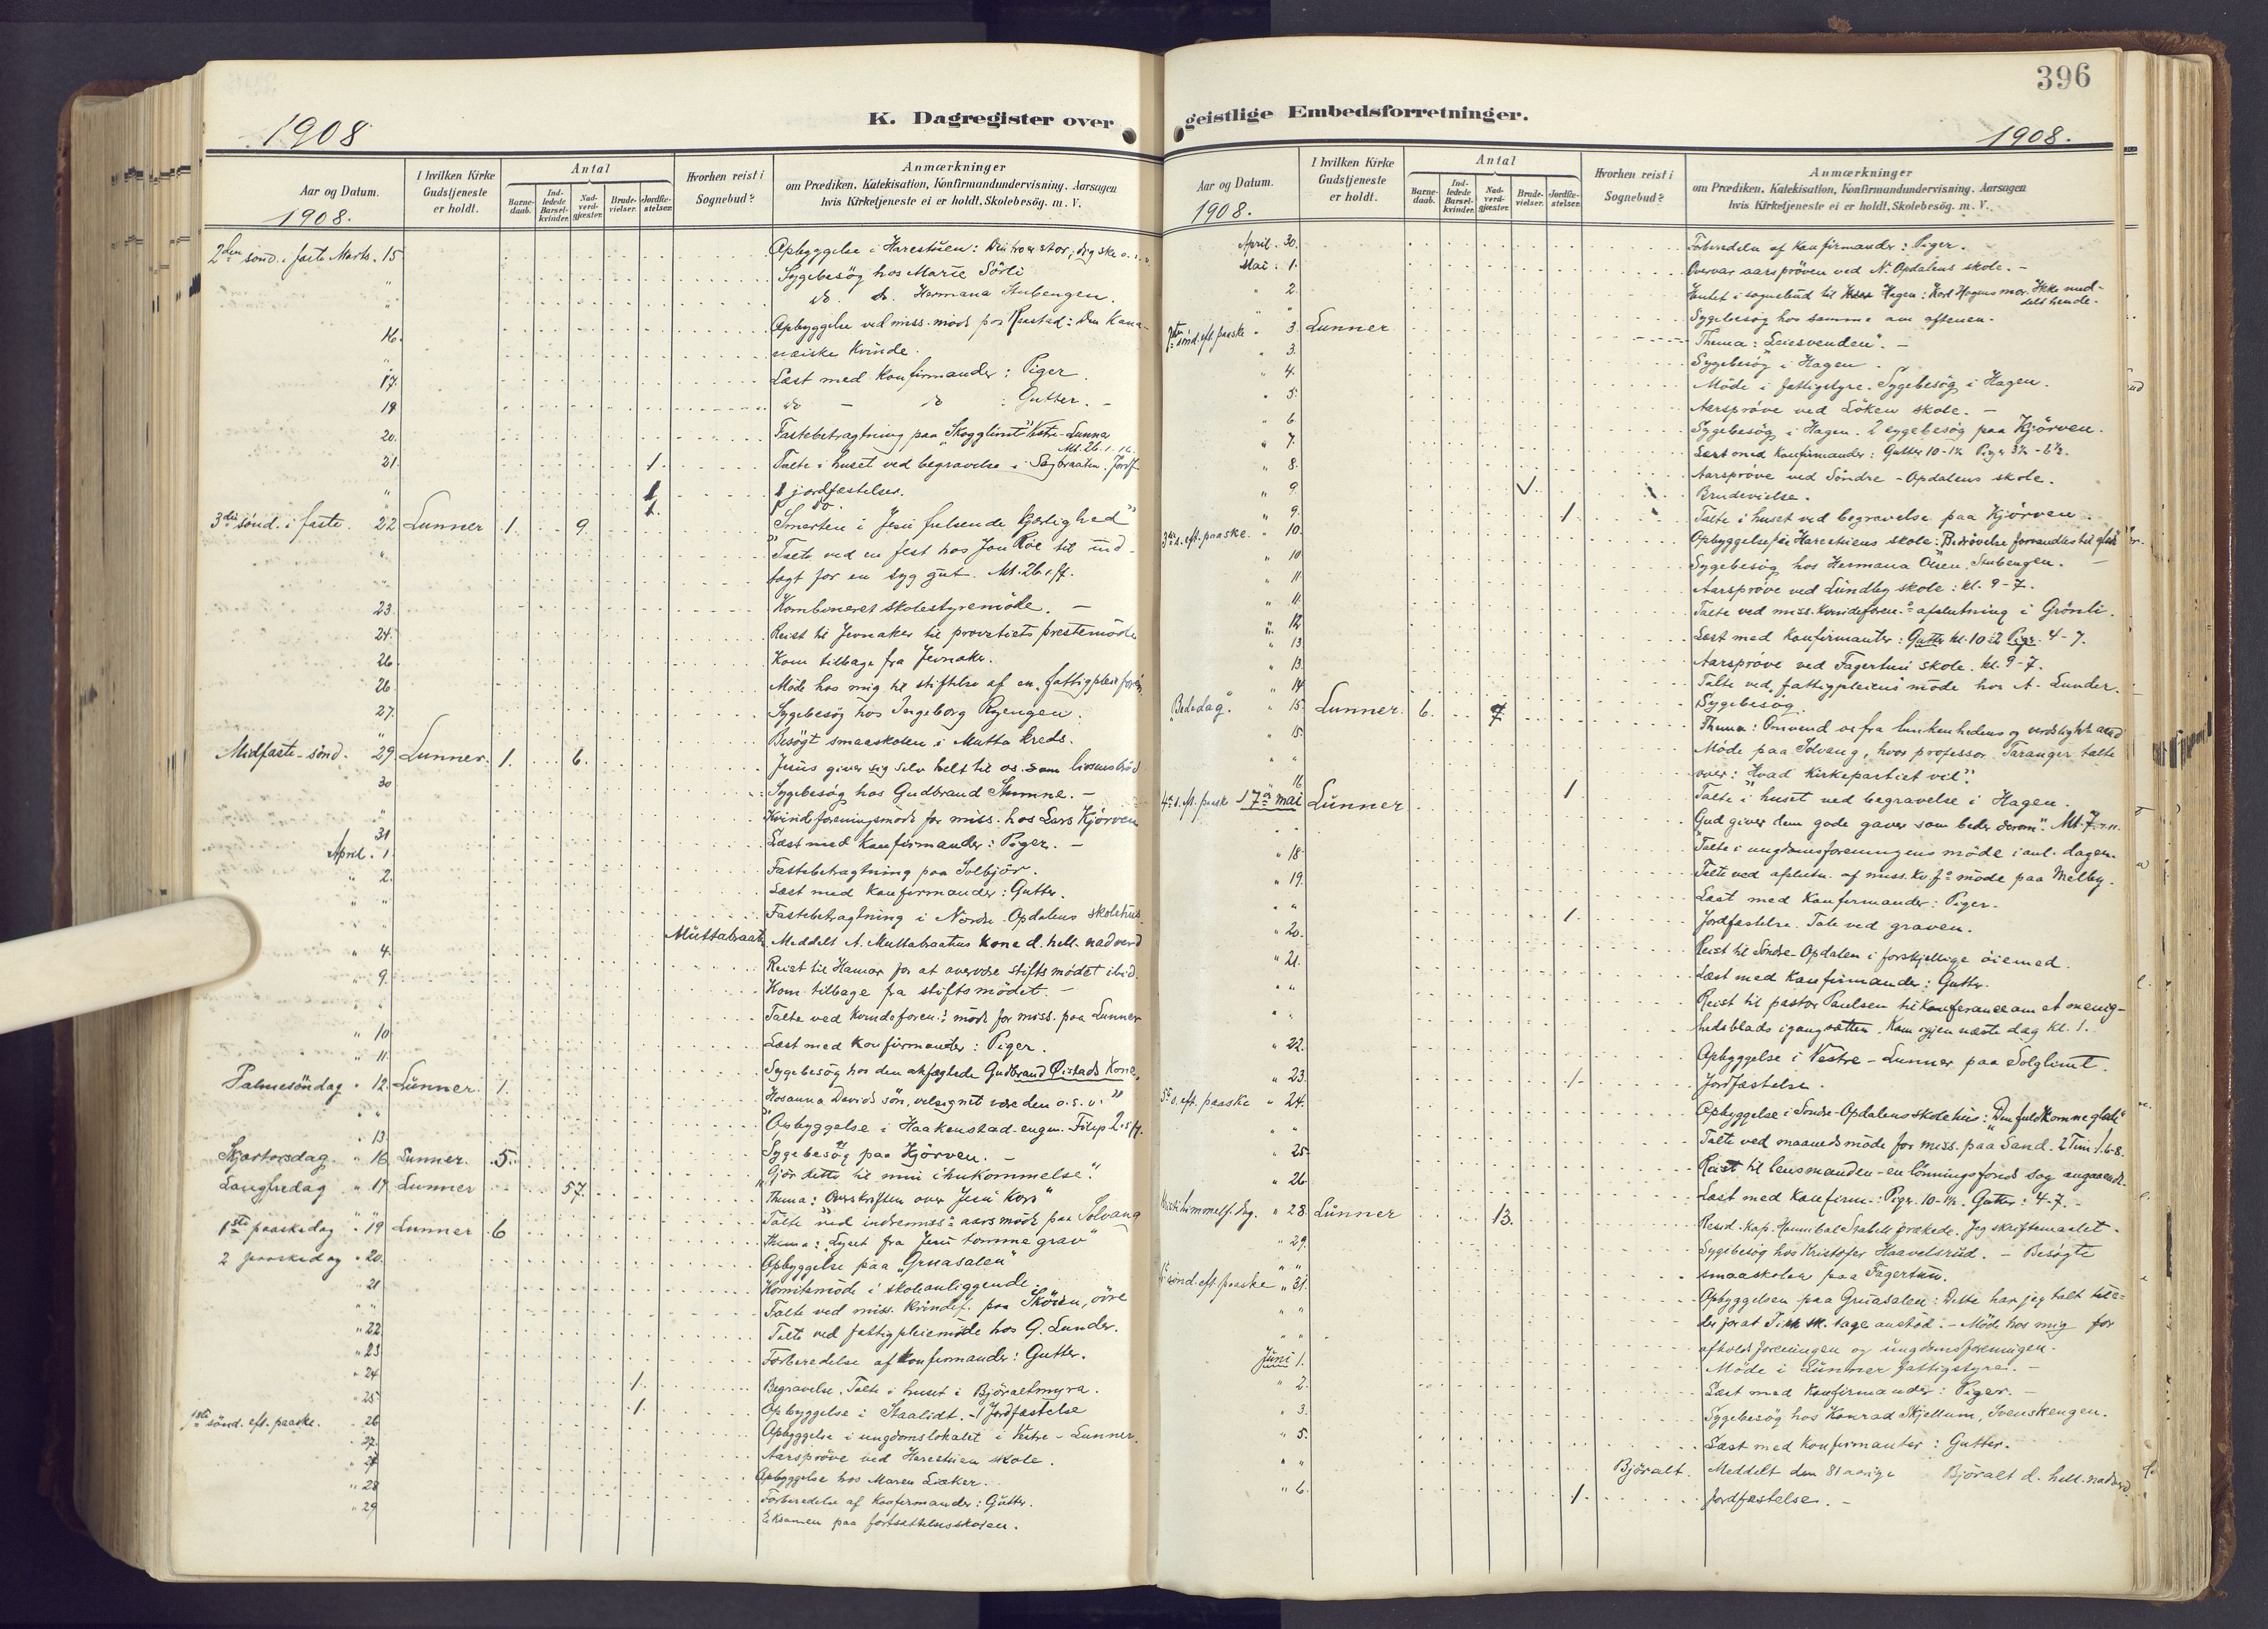 396
K. Dagregister over geistlige Embedsforretninger.
1908
Aar og Datum.
1908.
I hvilken Kirke Gudstjeneste er holdt.
Antal
Barne-daab.
Ind-ledede Barsel-kvinder.
Nad-verd-gjæster.
Brude-vielser.
Jordfæ-stelser.
Hvorhen reist i Sognebud?
Anmærkninger
om Prædiken, Katekisation, Konfirmandundervisning. Aarsagen
hvis Kirketjeneste ei er holdt, Skolebesög. m. V.
2den sönd. i faste Marts. 15 Opbyggelse i Harestuen: Din tro er stor; dig ske
" Sygebesög hos Marie Sörli
" do. do. Hermana Stubengen.
16. Opbyggelse ved miss. möde paa Rustad: Den kana-
næiske kvinde.
17. Læst med konfirmander: Piger
19. do - do : Gutter. -
20. Fastebetragtning paa "Skogglimt" Vestre-Lunner
Mt. 26. 1-16.
21. 1. Talte i huset ved begravelse i Sagbraaten. Jordf.
" 1 1 jordfæstelser.
1. 1 do.
3die sönd. i faste. 22 Lunner 1. 9. "Smerten i Jesu frelsende kjærlighed"
" Talte ved en fest hos Jon Roe til ind-
tægt for en syg gut. Mt. 26. 1 ff.
23. Kombineret skolestyremöde. -
24. Reist til Jevnaker til provstiets prestemöde
26 Kom tilbage fra Jevnaker.
26. Möde hos mig til stiftelse af en fattigpleieforen.
27. Sygebesög hos Ingeborg Ryengen.
" Besögt smaaskolen i Mutta kreds.
Midfaste-sönd. 29. Lunner. 1. 6. Jesus giver sig selv helt til os som livsens bröd
30 Sygebesög hos Gudbrand Stumne. -
" Kvindeforeningsmöde for miss. hos Lars Kjörven
31 Læst med konfirmander: Piger. -
April. 1. Fastebetragtning paa Solbjör.
" 2. Læst med konfirmander: Gutter.
" " Fastebetragtning i Nordre Opdalens skolehus.
" Muttabraat. Meddelt A. Muttabraatens kone d. hell. nadverd
" 4. Reist til Hamar for at overvære stiftsmödet ibid.
" 9. Kom tilbage fra stiftsmödet. -
" " Talte ved kvindeforen.s möde for miss. paa Lunner
" 10 Læst med konfirmander: Piger.
" 11. Sygebesög hos den anfægtede Gudbrand Östads kone.
Palmesöndag " 12. Lunner. 1. Hosanna Davids sön, velsignet være den o.s.v."
" " Opbyggelse i Haakenstad-engen. Filip 2. 5 ff.
" 13. Sygebesög paa Kjörven. -
Skjærtorsdag. " 16. Lunner. 5. "Gjör dette til min ihukommelse."
Langfredag " 17 Lunner 57. Thema: Overskriften over Jesu Kors"
" " Talte ved indremiss.s aarsmöde paa Solvang
1ste paaskedag " 19 Lunner 6 Thema: "Lyset fra Jesu tomme grav"
2 paaskedag " 20. Opbyggelse paa "Gruasalen"
" 21 Komitemöde i skoleanliggende.
" " Talte ved miss. kvindef. paa Skören, övre
" 22 Talte ved fattigpleiemöde hos G. Lunder.
" 23 Forberedelse af konfirmander: Gutter.
" 24 1. Begravelse. Talte i huset i Björaltmyra.
" 25 1. Opbyggelse i Staalidt. - 1 Jordfæstelse
1ste sönd. eft. paaske. " 26 Opbyggelse i ungdomslokalet i Vestre-Lunner.
" 27. Aarspröve ved Harestuen skole.
" 27 Opbyggelse hos Maren Lieker.
" 28 Forberedelse af konfirmander: Gutter.
" 29 Eksamen paa fortsættelsesskolen.
1908.
Aar og Datum.
1908.
I hvilken Kirke Gudstjeneste er holdt.
Antal
Barne-daab.
Ind-ledede Barsel-kvinder.
Nad-verd-gjæster.
Brude-vielser.
Jordfæ-stelser.
Hvorhen reist i Sognebud?
Anmærkninger
om Prædiken, Katekisation, Konfirmandundervisning. Aarsagen
hvis Kirketjeneste ei er holdt, Skolebesög. m. V.
April. 30. Forberedelse af konfirmander: Piger.
Mai. 1. Overvar aarspröven ved N. Opdalens skole. -
" 2 Hentet i sognebud til Hagen: Karl Hagens mor. Ikke med-
delt hende.
" " Sygebesög hos samme om aftenen.
sönd. eft. paaske " 3. Lunner Thema: "Leiesvenden". -
" 3. Sygebesög i Hagen.
" 4. Möde i fattigstyre. Sygebesög i Hagen.
" 5. Aarspröve ved Löken skole. -
" 6 Sygebesög i Hagen. 2 sygebesög paa Kjörven.
" 7. Læst med konfirmander: Gutter 10-1½ Piger 3½-6½.
" 8. Aarspröve ved Söndre-Opdalens skole.
" 9. Brudevielse.
" 9. 1. Talte i huset ved begravelse paa Kjörven.
3die s. eft. paaske. " 10. Opbyggelse paa Harestuens skole: Bedrövelse forvandles til glæde
" 10 Sygebesög hos Hermana Olsen, Stubengen. -
" 11. Aarspröve ved Lundby skole: kl. 9-7.
" 11. Talte ved miss. kvindeforen.s afslutning i Grönli.
" 12 Læst med konfirmanter: Gutter kl. 10-2 Piger 4-7.
" 13 Aarspröve ved Fagertun skole. kl. 9-7.
" 13. Talte ved fattigpleiens möde hos A. Lunder.
" 14 Sygebesög.
Bededag. " 15. Lunner. 6. 7 Thema: Omvend os fra lunkenhedens og verdslighedens aand
" 15 Möde paa Solvang, hvor professor Taranger talte
" " over: "Hvad Kirkepartiet vil".
16 1 Talte i huset ved begravelse i Hagen.
4de s. eft. paaske 17de mai Lunner "Gud giver dem gode gaver som beder derom". Mt. 7. 7-11.
" " Talte i ungdomsforeningens möde i anl. dagen.
" 18 Talte ved afslutn. af miss. kv. f.s möde paa Melby.
" 19. Læst med konfirmander: Piger.
" " 1. Jordfæstelse. Tale ved graven.
" 20. Reist til Söndre-Opdalen i forskjellige öiemed.
" 21. Læst med konfirmander: Gutter.
" " Reist til pastor Paulsen til konferance om et menig-
hedsblads igangsætten. Kom igjen næste dag kl. 1.
" 22. Opbyggelse i Vestre-Lunner paa Solglimt.
" 23. 1. Jordfæstelse.
5te s. eft. paaske " 24. Opbyggelse i Söndre-Opdalens skolehus: "Den fuldkomne glæde"
" " Talte ved maanedsmöde for miss. paa Sand. 2 Tim 1. 6-8.
" 25 Reist til lensmanden - en lönningsfonds sag angaaende.
" 26 Læst med konfirm.: Piger. 10-1½. Gutter: 4-7. -
Kristi himmelf. dag. " 28. Lunner 13. Resid. kap. Hannibal Stabell prækede. Jeg skriftemaalet.
" 29. Sygebesög hos Kristofer Haavelsrud. - Besögte
" " smaaskolen paa Fagertun.
sönd. eft. paaske " 31. Opbyggelsen paa Gruasalen: Dette har jeg talt til e-
" " der forat I ikke sk. tage anstöd. - Möde hos mig for
" " afholdsforeningen og ungdomsforeningen.
Juni 1. Möde i Lunner fattigstyre. -
" 2. Læst med konfirmander: Piger. -
" 3. Sygebesög hos Konrad Skjellum, Svenskengen.
" 5. Læst med konfirmanter: Gutter.
" " Björalt. Meddelt den 81 aarige Björalt d. hell. nadverd.
" 6. 1. Jordfæstelse. -